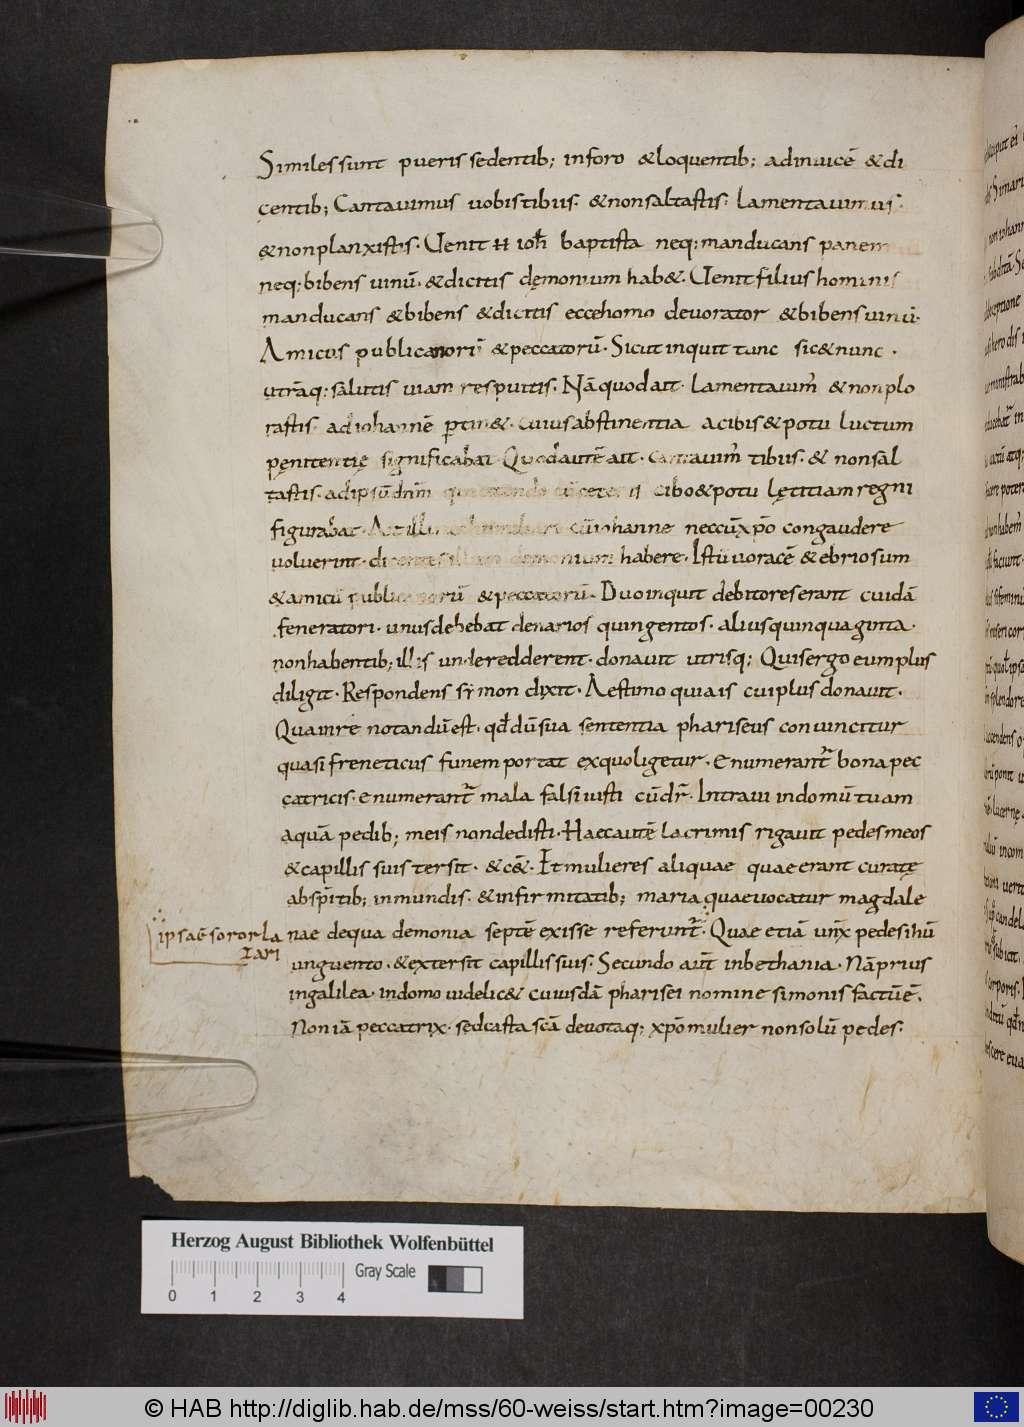 Similes sunt pueris sedentib; inforo &loquentib; adinuicē &di
centib; Cantauimus uobis tibiis. &nonsaltastis. lamentauimus.
&nonplanxistis. Uenit ioħ baptista neq; manducans panem
neq; bibens uinū. &dicitis dęmonium hab&. Uenit filius hominis
manducans &bibens &dicitis eccehomo deuorator &bibens uinū.
Amicus publicanorū &peccatorū. Sicut inquit tunc sic&nunc.
utrāq; salutis uiam respuitis. Nāquodait. lamentauim̄ &nonplo
rastis. adiohannē ptin&. cuius abstinentia acibis&potu luctum
pęnitentię significabat. Quodautēait. cantauim̄ tibiis. & nonsal
tastis. adipsūdn̄m cibo&potu lętitiam regni
figurabat. cūiohanne neccūxp̄o congaudere
uoluerint. dicentes illum demonium habere. Istū uoracē &ebriosum
&amicū publicanorū &peccatorū. Duo inquit debitores erant cuidā
feneratori. unus debebat denarios quingentos. alius quinquaginta.
nonhabentib; illis underedderent. donauit utrisq; Quis ergo eumplus
diligit. Respondens symon dixit. Aestimo quia is cui plus donauit.
Quainre notandū est. qđ dūsua sententia phariseus conuincitur
quasi freneticus funem portat exquoligetur. enumerant̄ bona pec
catricis. enumerant̄ mala falsi iusti cūdr̄. Intraui indomū tuam
aquā pedib; meis nondedisti. Haecautē lacrimis rigauit pedesmeos
&capillis suis tersit. &c&̄. Et mulieres aliquae quaeerant curatę
absp̄itib; inmundis. &infirmitatib; maria quaeuocatur magdale
ipsaē soror la
zari
nae dequa demonia septē exisse referunt̄. Quae etiā unx̄ pedes ihū
unguento. &extersit capillis suis. Secundo aūt inbethania. Nāprius
ingalilea. indomo uidelic& cuiusdā pharisei nomine simonis factūē.
Non iā peccatrix. sedcasta scā deuotaq; xp̄o mulier nonsolū pedes.
Herzog August Bibliothek Wolfenbüttel
Gray Scale
0 1 2 3 4
© HAB http://diglib.hab.de/mss/60-weiss/start.htm?image=00230